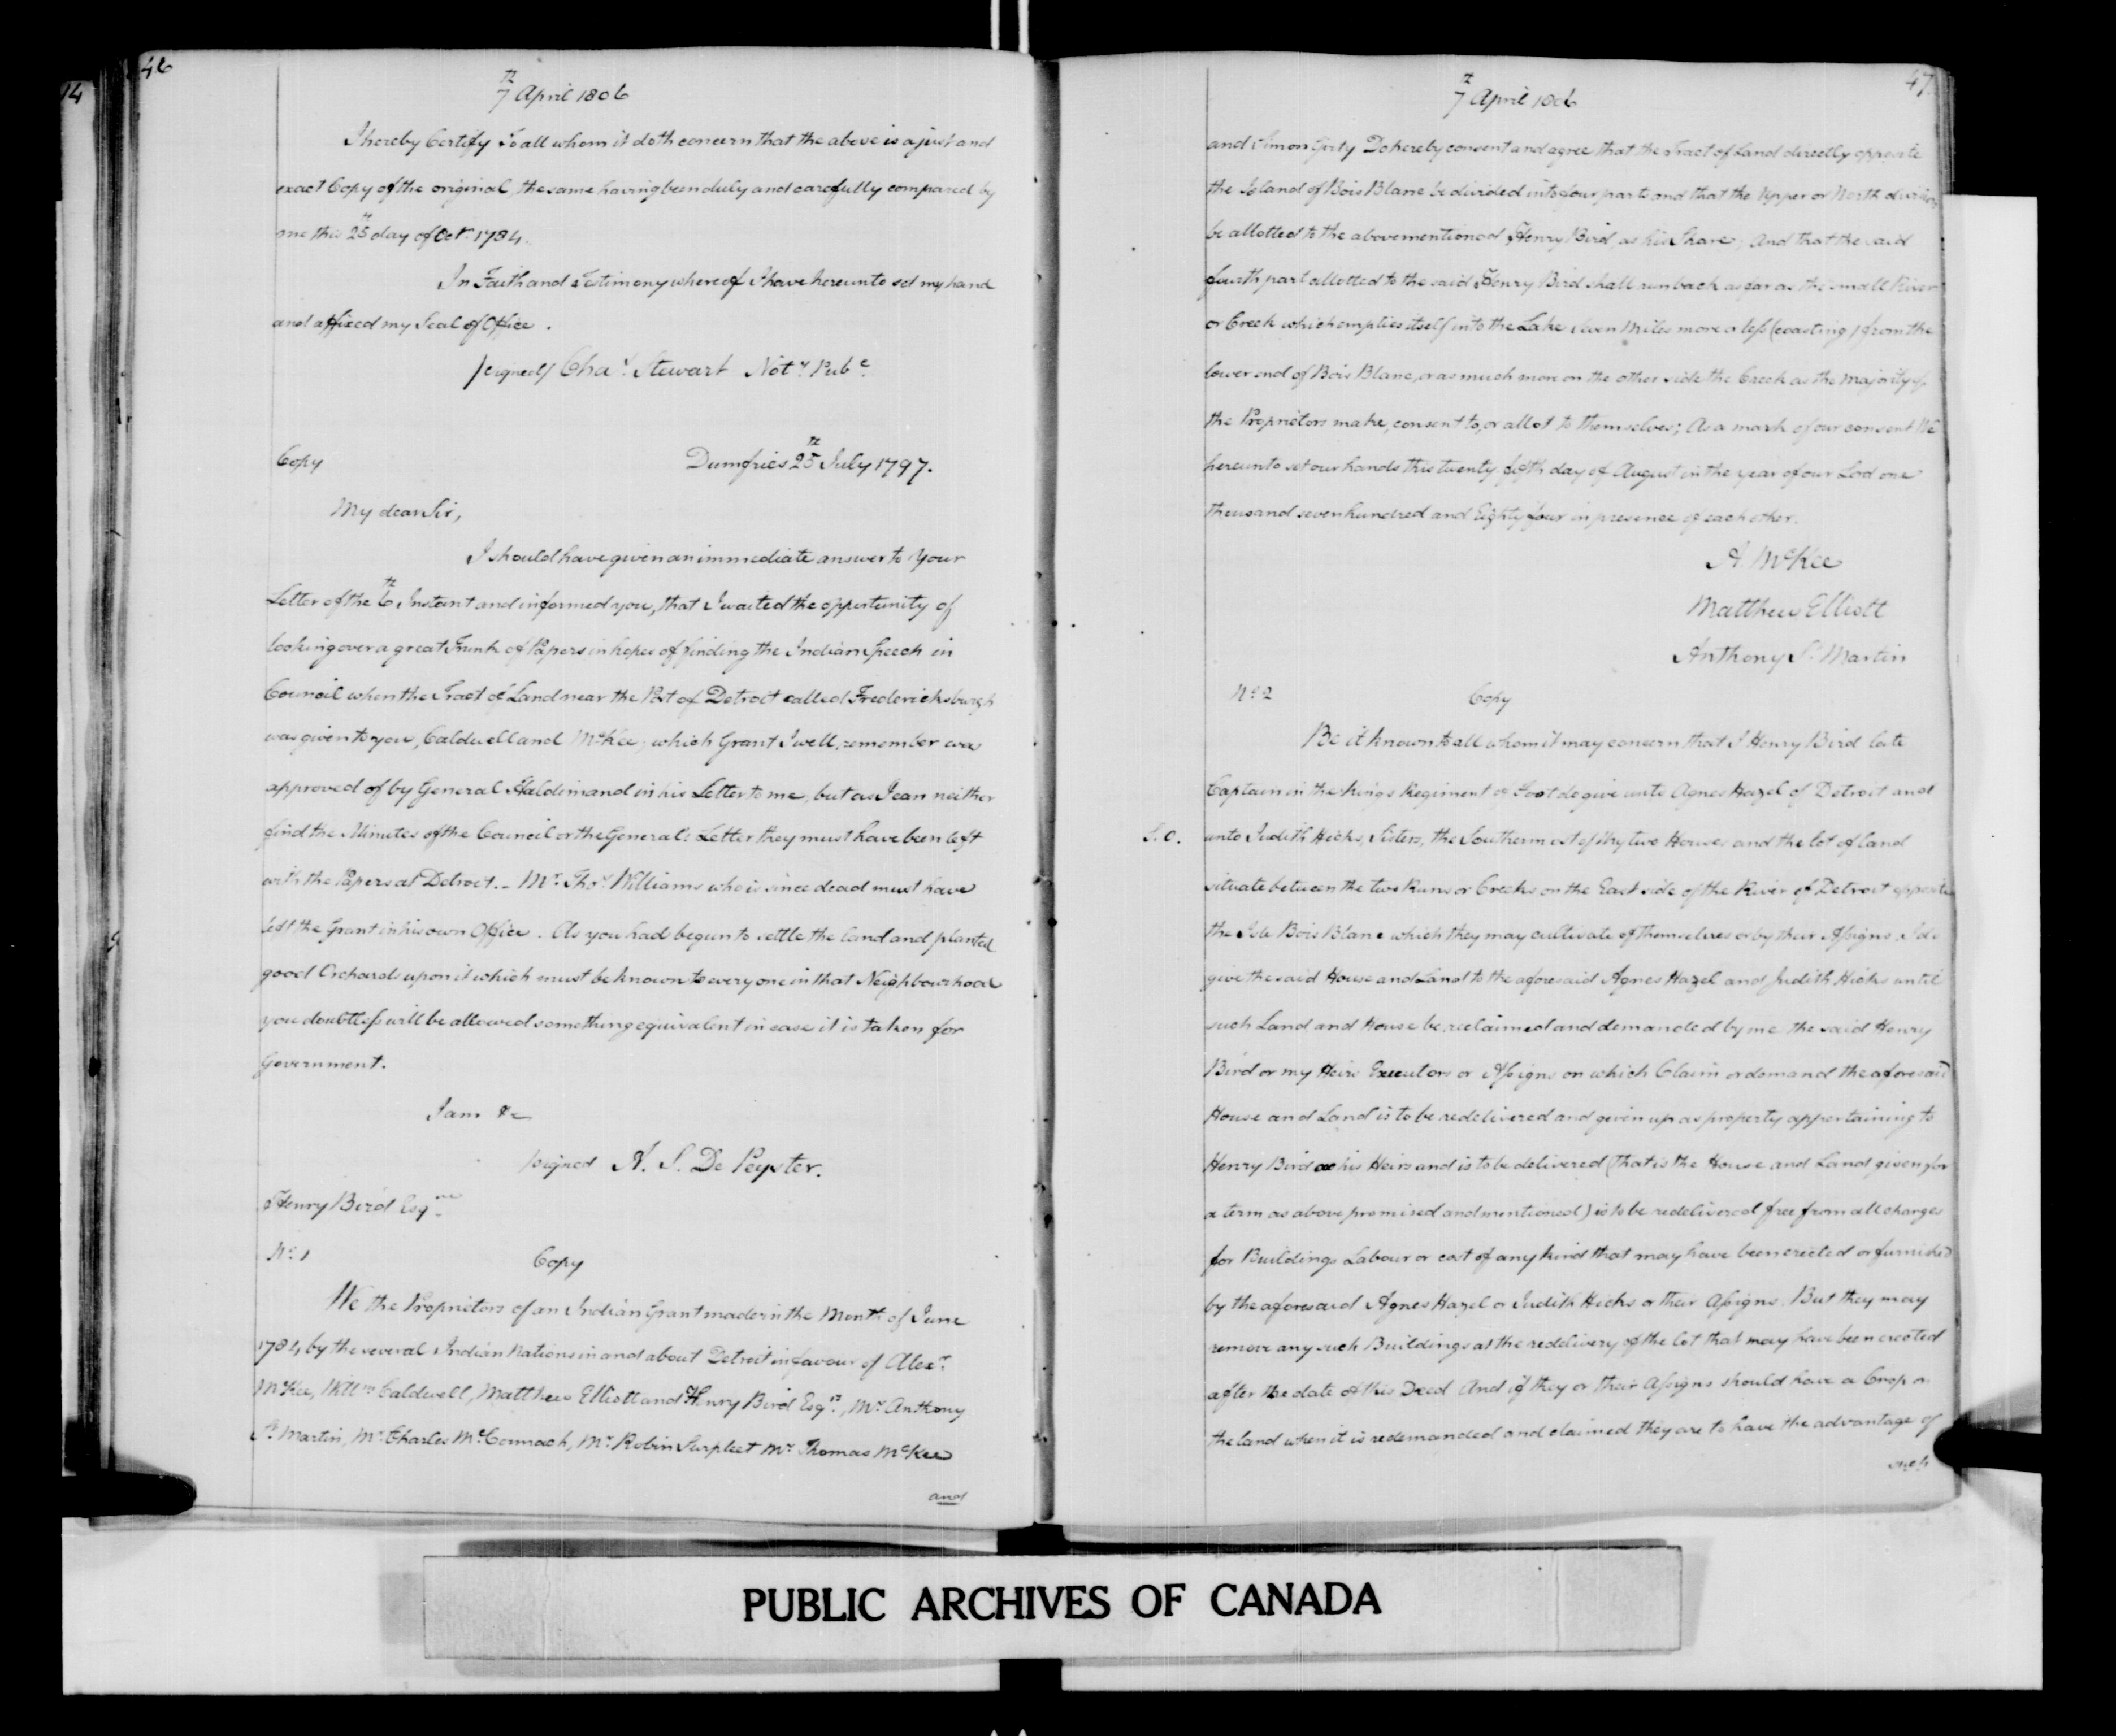 46
7th April 1806
I hereby Certify To all whom it doth concern that the above is a just and
exact Copy of the original, the same having been duly and carefully compared by
me this 25th day of Octr. 1784.
In Faith and Testimony whereof I have hereunto set my hand
and affixed my Seal of Office.
/signed/ Chas. Stewart Noty. Pubc.
Copy
Dumfries 25th July 1797.
My dear Sir,
I should have given an immediate answer to Your
Letter of the 6th Instant and informed you, that I waited the oppertunity of
looking over a great Trunk of Papers in hopes of finding the Indian Speech in
Council when the Tract of Land near the Post of Detroit called Fredericksburgh
was given to you, Caldwell and McKee, which Grant I well remember was
approved of by General Haldimand in his Letter to me, but as I can neither
find the Minutes of the Council or the General's Letter they must have been left
with the Papers at Detroit. _ Mr. Thos. Williams who is since dead must have
left the Grant in his own Office. As you had begun to settle the land and planted
good Orchards upon it which must be known to every one in that Neighbourhood
you doubtless will be allowed something equivalent in case it is taken for
Government.
I am &c
/signed A. S. De Peyster.
Henry Bird Esqre.
No. 1
Copy
We the Proprietors of an Indian Grant made in the Month of June
1784, by the several Indian Nations in and about Detroit in favour of Alexr.
McKee, Willm Caldwell, Matthew Elliott and Henry Bird Esqrs., Mr. Anthony
St. Martin, Mr. Charles McCormack, Mr. Robin Surpleet Mr. Thomas McKee
and
47
7th April 1806
and Simon Girty Do hereby consent and agree that the Tract of Land directly opposite
the Island of Bois Blanc be divided into four parts and that the Upper or North division
be allotted to the abovementioned Henry Bird, as his Share; And that the said
fourth part allotted to the said Henry Bird shall run back as far as the small River
or Creek which empties itself into the Lake seven Miles more or less (coasting) from the
lower end of Bois Blanc, or as much more on the other side the Creek as the Majority of
the Proprietors make, consent to, or allot to themselves; As a mark of our consent We
hereunto set our hands this twenty fifth day of August in the year of our Lod one
thousand seven hundred and Eighty four in presence of each other.
A. McKee
Matthew Elliott
Anthony St. Martin
No. 2
Copy
Be it known to all whom it may concern that I Henry Bird late
Captain in the Kings Regiment of Foot do give unto Agnes Hazel of Detroit and
S. O.
unto Judith Hicks, Sisters, the Southermost of my two Houses and the lot of land
situate between the two Runs or Creeks on the East side of the River of Detroit opposite
the Isle Bois Blanc which they may cultivate of themselves or by their Assigns. I do
give the said House and Land to the aforesaid Agnes Hazel and Judith Hicks until
such Land and House be reclaimed and demanded by me the said Henry
Bird or my Heirs Executors or Assigns on which Claim or demand the aforesaid
House and Land is to be redelivered and given up as property appertaining to
Henry Bird or his Heirs and is to be delivered (that is the House and Land given for
a term as above promised and mentioned) is to be redelivered free from all charges
for Buildings Labour or cost of any kind that may have been erected or furnished
by the aforesaid Agnes Hazel or Judith Hicks or their Assigns. But they may
remove any such Buildings at the redelivery of the lot that may have been erected
after the date of this Deed And if they or their Assigns should have a Crop on
the land when it is redemanded and claimed they are to have the advantage of
such
PUBLIC ARCHIVES OF CANADA